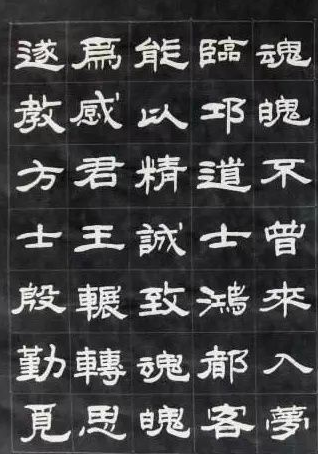 魂魄不曾來入夢
臨邛道士鴻都客
能以精誠致魂魄
爲感君王輾轉思
遂教方士殷勤覓